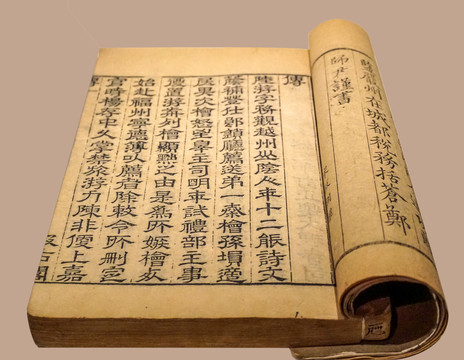 監嚴州在城都稅務括蒼鄭
師尹謹書
傳
陸游字務觀越州山陰人年十二能詩文
蔭補登仕郎鎖廳薦送第一秦檜孫塤適
居其次檜怒至罪主司明年試禮部主事
復置游前列檜顯黜之由是爲所嫉檜死
始赴福州寧德簿以薦者除敕令所刪定
官時楊存中久掌禁旅游力陳非便上嘉
傳
汲古閣